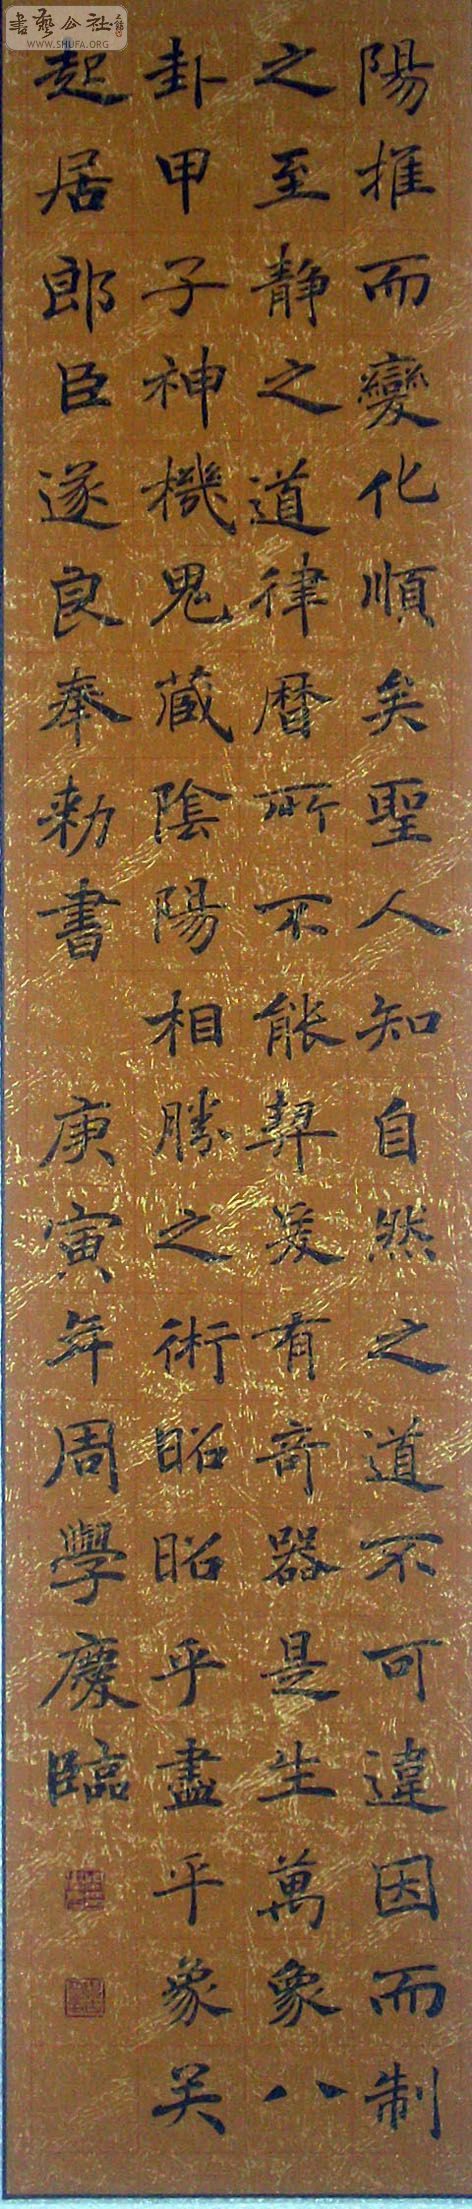 陽推而變化順矣聖人知自然之道不可違因而制
之至静之道律曆所不能契爰有奇器是生萬象八
卦甲子神機鬼藏陰陽相勝之術昭昭乎盡乎象矣
起居郎臣遂良奉勅書 庚寅年周學慶臨
書藝公社
WWW.SHUFA.ORG